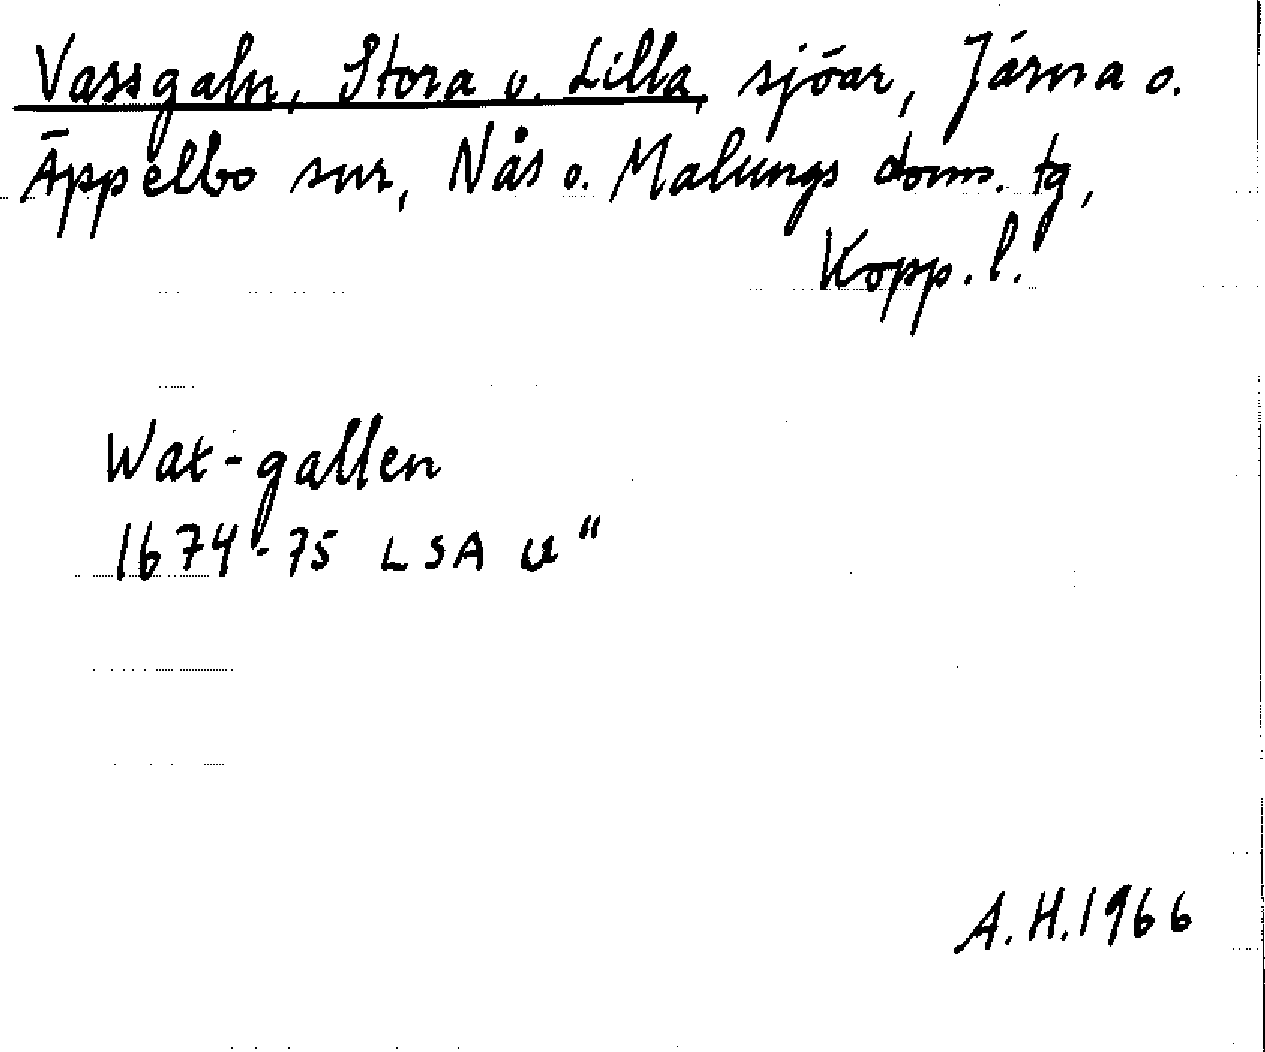 Vassgaln, Stora o. Lilla, sjöar, Järna o.
Äppelbo snr, Nås o. Malungs doms. tg,
Kopp. l.
Wat-gallen
1674-75 LSA U"
A.H.1966